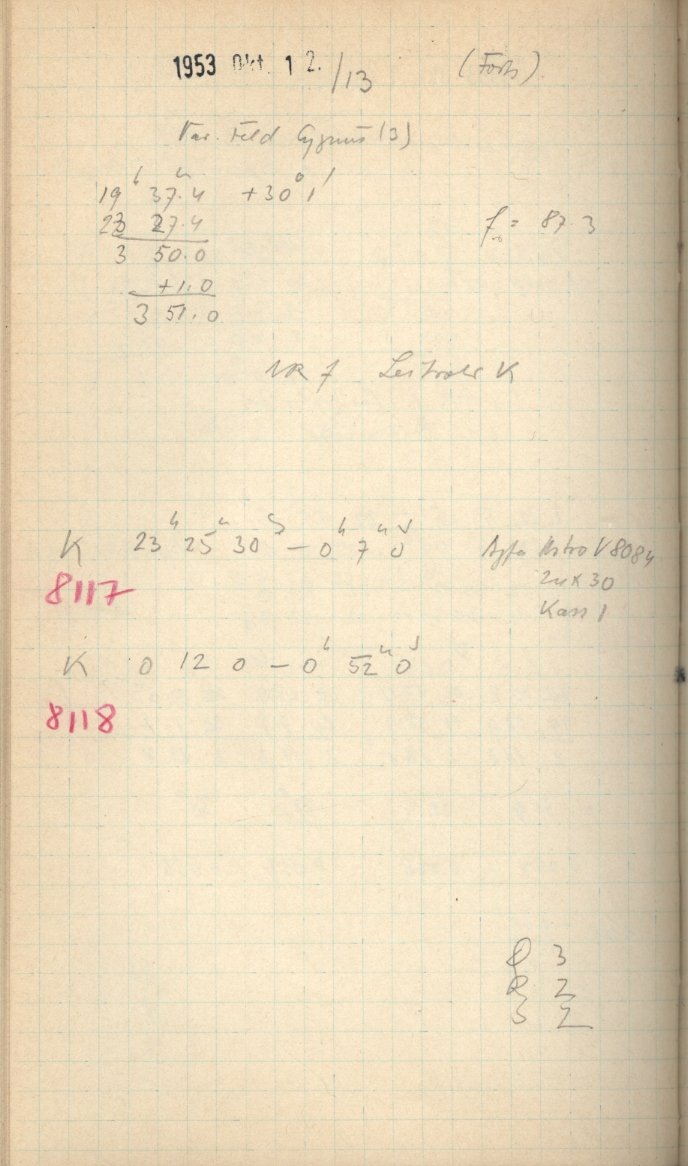 1953 Okt. 12./13 (Forts).
Var. Feld Cygnus (3)
19ʰ 37.4ᵐ +30° 1'
23 27.4
3 50.0
+1.0
3 51.0
f = 87.3
NR 7 Leitrohr K
K 23ʰ 25ᵐ 30ˢ – 0ʰ 7ᵐ 0ˢ
Agfa Astro V8084
24x30
Kass 1
8117
K 0 12 0 – 0ʰ 52ᵐ 0ˢ
8118
D 3
R 2
S 2